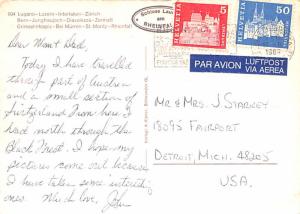 604 Lugano-Luzern-Interlaken-Zürich
Bern-Jungfraujoch-Diavolezza-Zermatt
Grimsel-Hospiz-Bei Murren-St. Moritz-Rheinfall
Dear Mom & Dad,
Today I have travelled
through part of Austria
and a small section of
Switzerland. From here I
head north through the
Black Forest. I hope my
pictures come out because
I have taken some interest-
ing ones. Much love, John
Schloss Laufen
am
RHEINFALL
HELVETIA 5
HELVETIA 50
PAR AVION LUFTPOST
VIA AEREA
Mr & Mrs J. Starkey
18095 Fairport
Detroit, Mich. 48205
U.S.A.